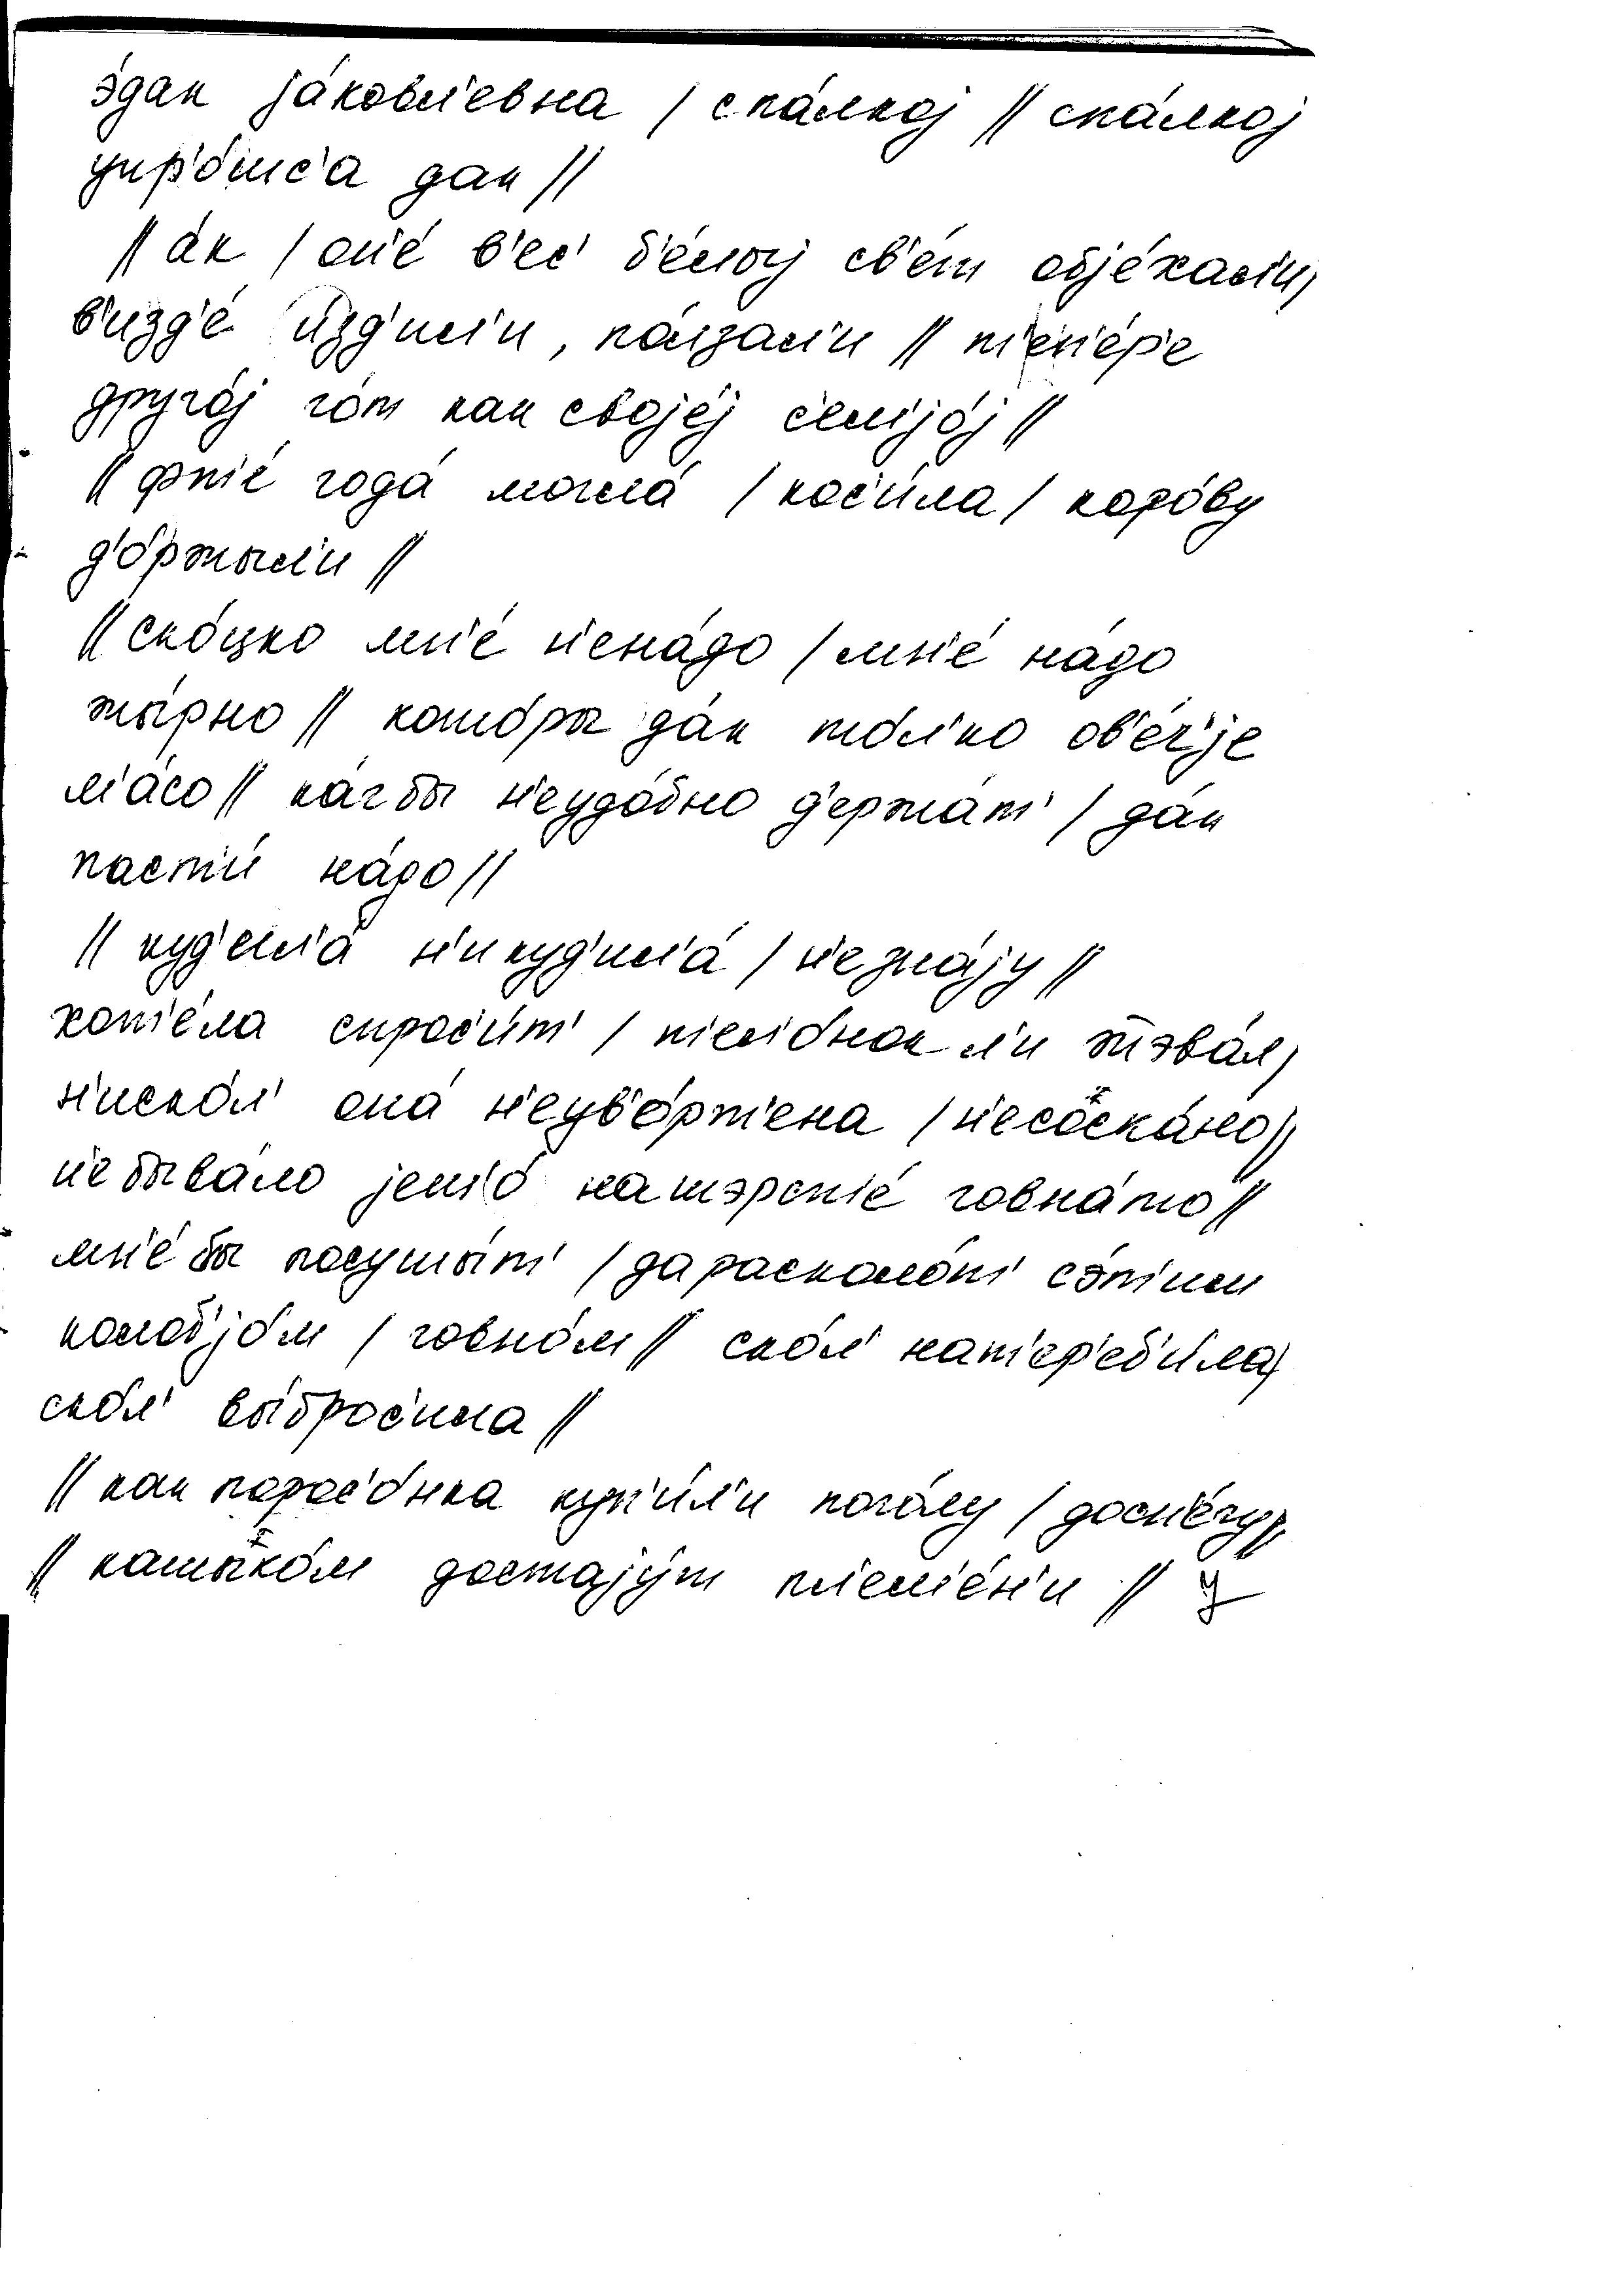 э́дак jа́ковл'евна / спа́лкоj // спа́лкоj
упр'о́шс'а дак //
// а́к / он'е́ в'ес' б'е́лоj св'е́т обjе́хал'и,
в'изд'е́ и́зд'ил'и, по́лзал'и // т'еп'е́р'е
друго́j го́т как своjе́j с'ем'jо́j //
// фт'е́ года́ могла́ / кос'и́ла / коро́ву
д'о́ржыл'и //
// ско́цко мн'е́ н'ена́до / мн'е́ на́до
жы́рно // кото́ры да́к то́л'ко ов'е́ч'jе
м'а́со // ка́г бы н'еудо́бно д'ержа́т' / да́к
паст'и́ на́до //
// куд'ел'а́ н'икуд'ил'а́ / н'езна́jу //
хот'е́ла спрос'и́т' / т'ел'о́нок л'и жэва́л /
н'иско́л' она́ н'еув'о́рт'ена / н'есоска́но //
н'ебыва́ло jещ'о́ нашэрст'е́ говна́то //
мн'е́ бы посушы́т' / да расколо́т' сэ́т'им
колоб'jо́м / говно́м // ско́л' нат'ер'еб'и́ла /
ско́л' вы́брос'ила //
// как порос'о́нка куп'и́л'и пого́лу / досн'е́гу //
// катыко́м достаjу́т пл'ем'е́н'и // У